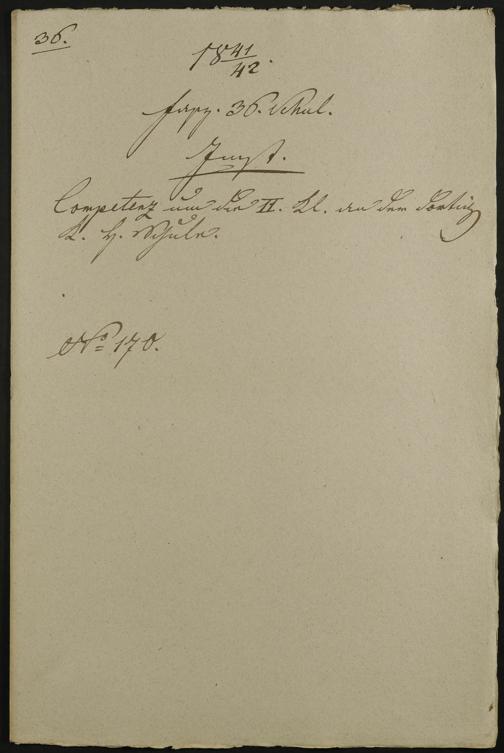 36.
18 41/42.
Fasz. 36. Schul.
Imst.
Competenz um die II. Kl. an der dortig
k. H. Schule.
No 170.